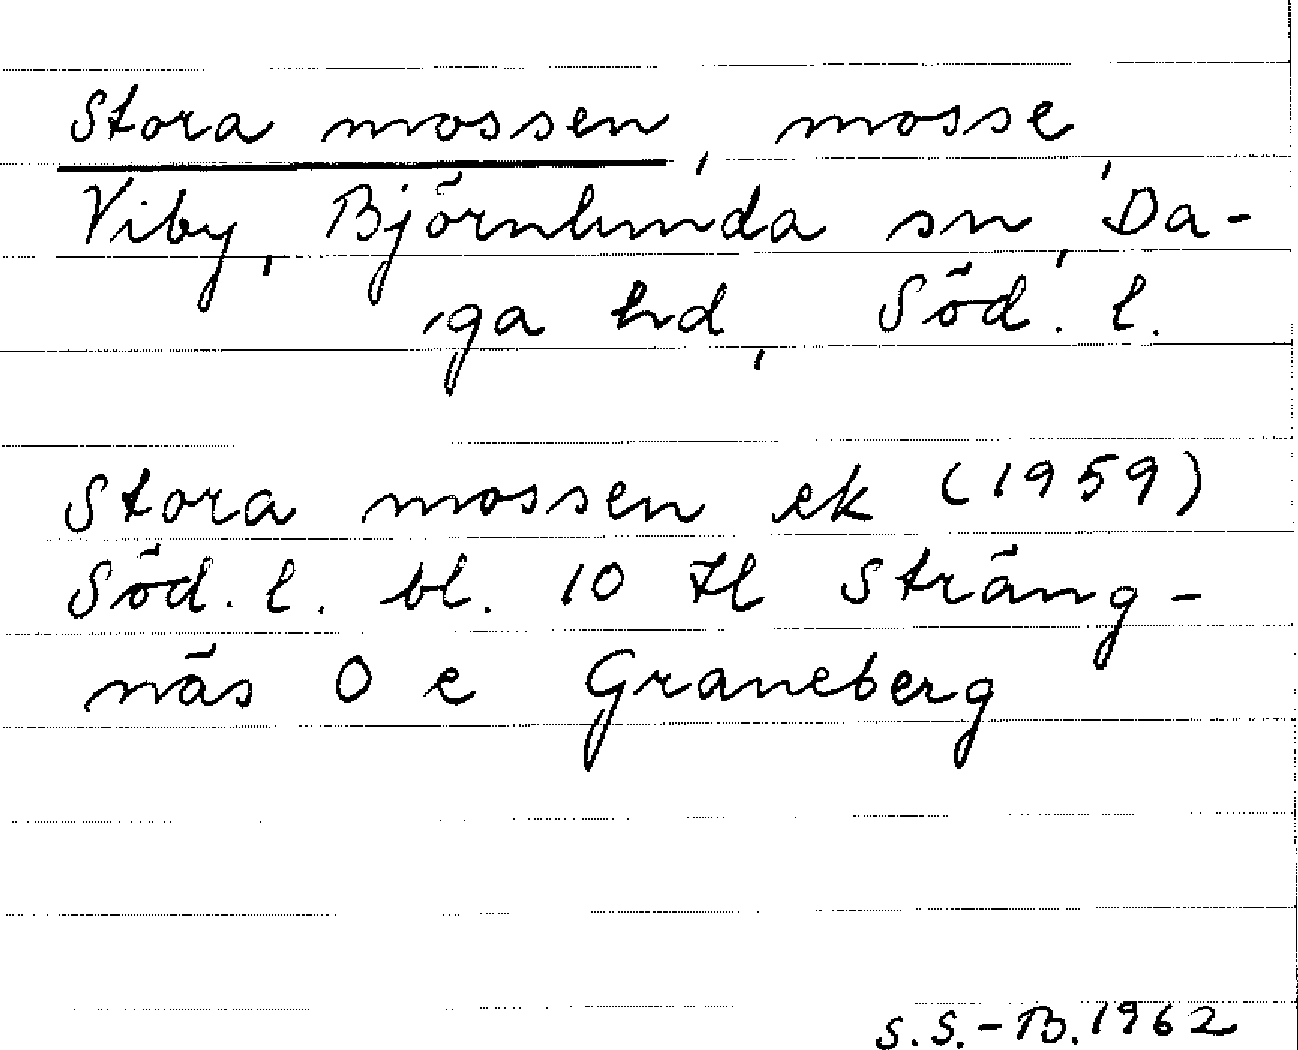 Stora mossen, mosse,
Viby, Björnlunda sn, Da-
ga hd, Söd. l.
Stora mossen ek (1959)
Söd. l. bl. 10 Hl Sträng-
näs O e Graneberg
S.S.-B. 1962